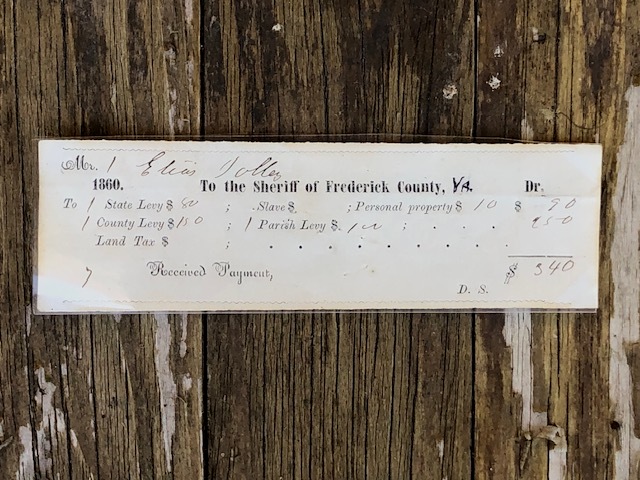 Mr. 1 Elias Jolley
1860. To the Sheriff of Frederick County, Va. Dr.
To 1 State Levy $ 80 ; Slave $ ; Personal property $ 10 $ 90
1 County Levy $ 150 ; 1 Parish Levy $ 100 ; . . . 250
Land Tax $ ; . . . . . . . .
7 Received Payment, $ 340
D. S.